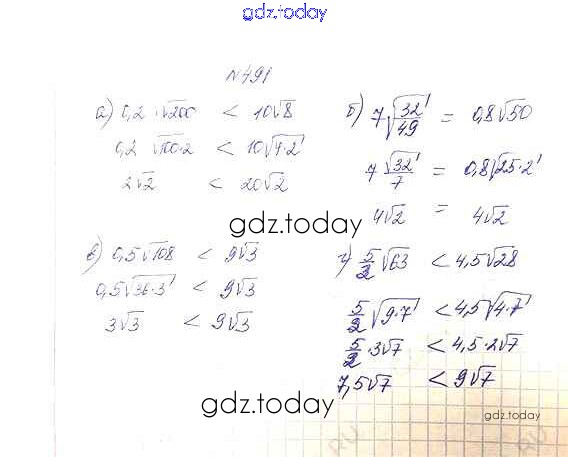 gdz.today
N491
а) 0,2 · √200 < 10√8
0,2 √100·2 < 10√4·2
2√2 < 20√2
б) 7√32/49 = 0,8√50
7 √32/7 = 0,8√25·2
4√2 = 4√2
gdz.today
в) 0,5√108 < 9√3
0,5√36·3 < 9√3
3√3 < 9√3
г) 5/2 √63 < 4,5√28
5/2 √9·7 < 4,5√4·7
5/2 · 3√7 < 4,5·2√7
7,5√7 < 9√7
gdz.today
gdz.today